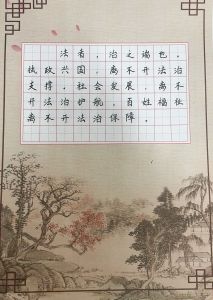 法者，治之端也，
执政兴国，离不开法治
支撑，社会发展，离不
开法治护航，百姓福祉
离不开法治保障。